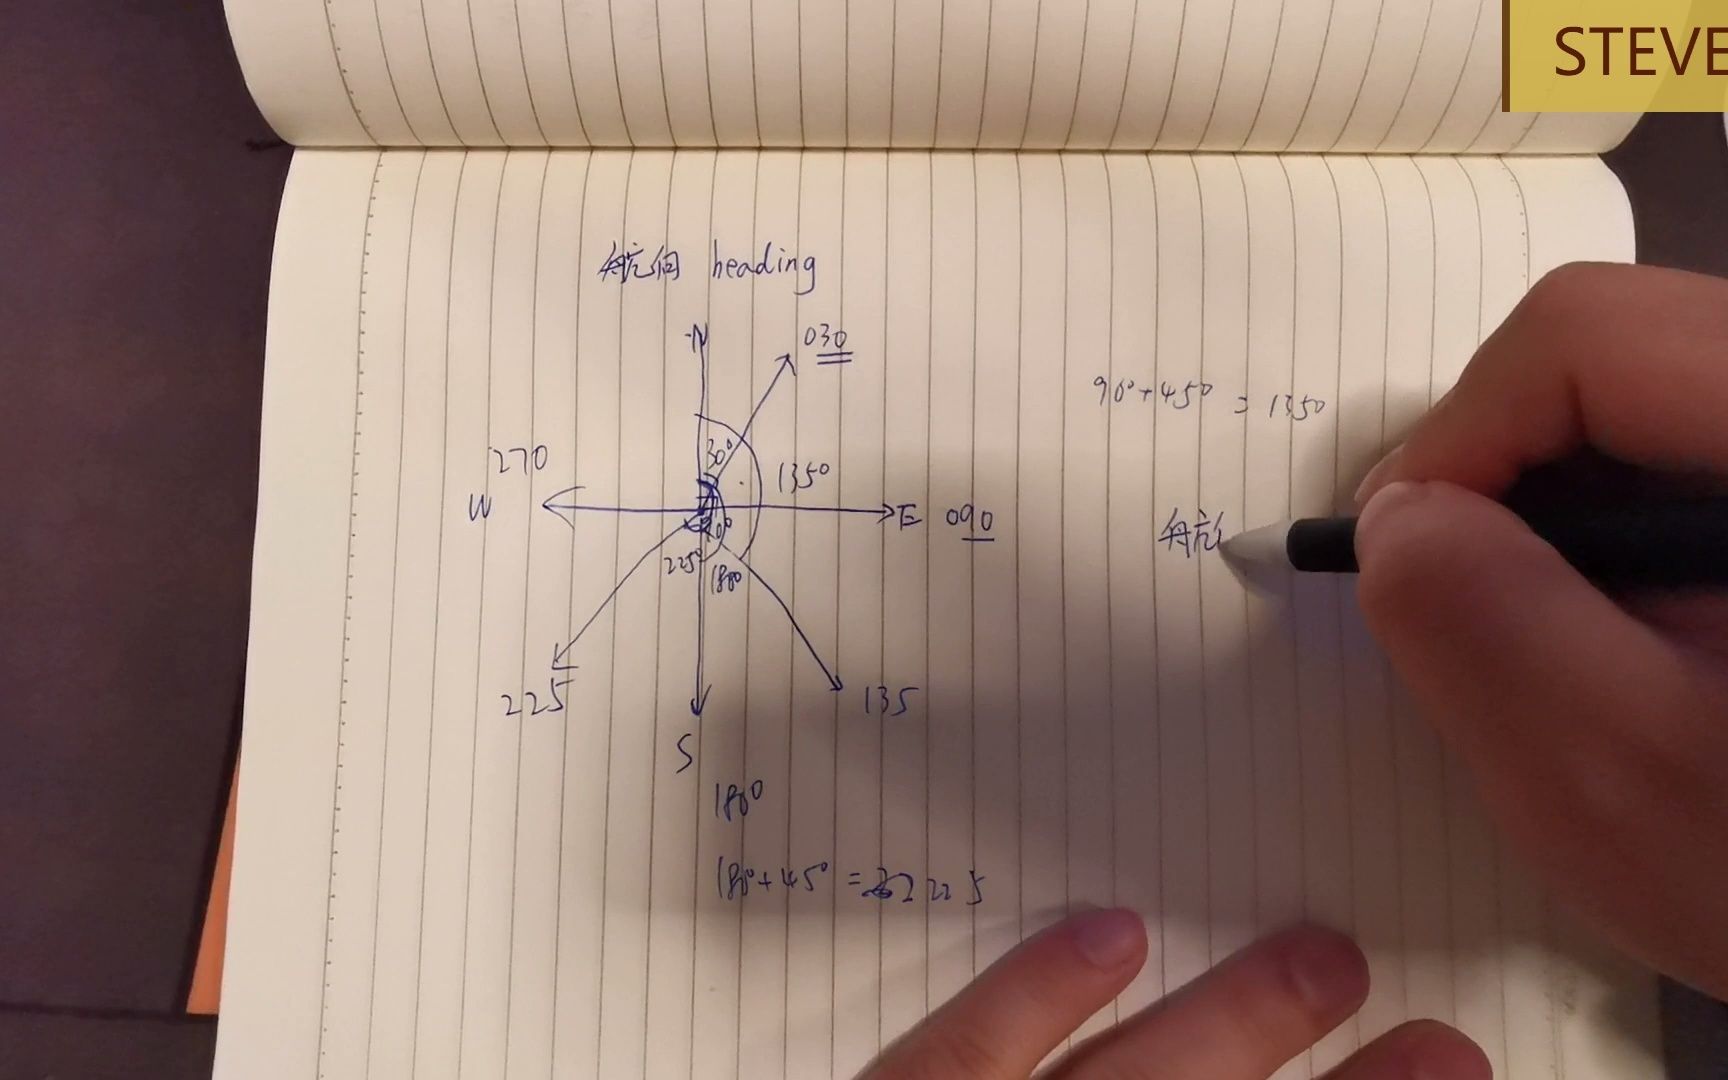 STEVE
航向 heading
N
030
90°+45° = 135°
30°
270
135°
W
E 090
航
90°
225°
180°
225
135
S
180
180°+45° = 225